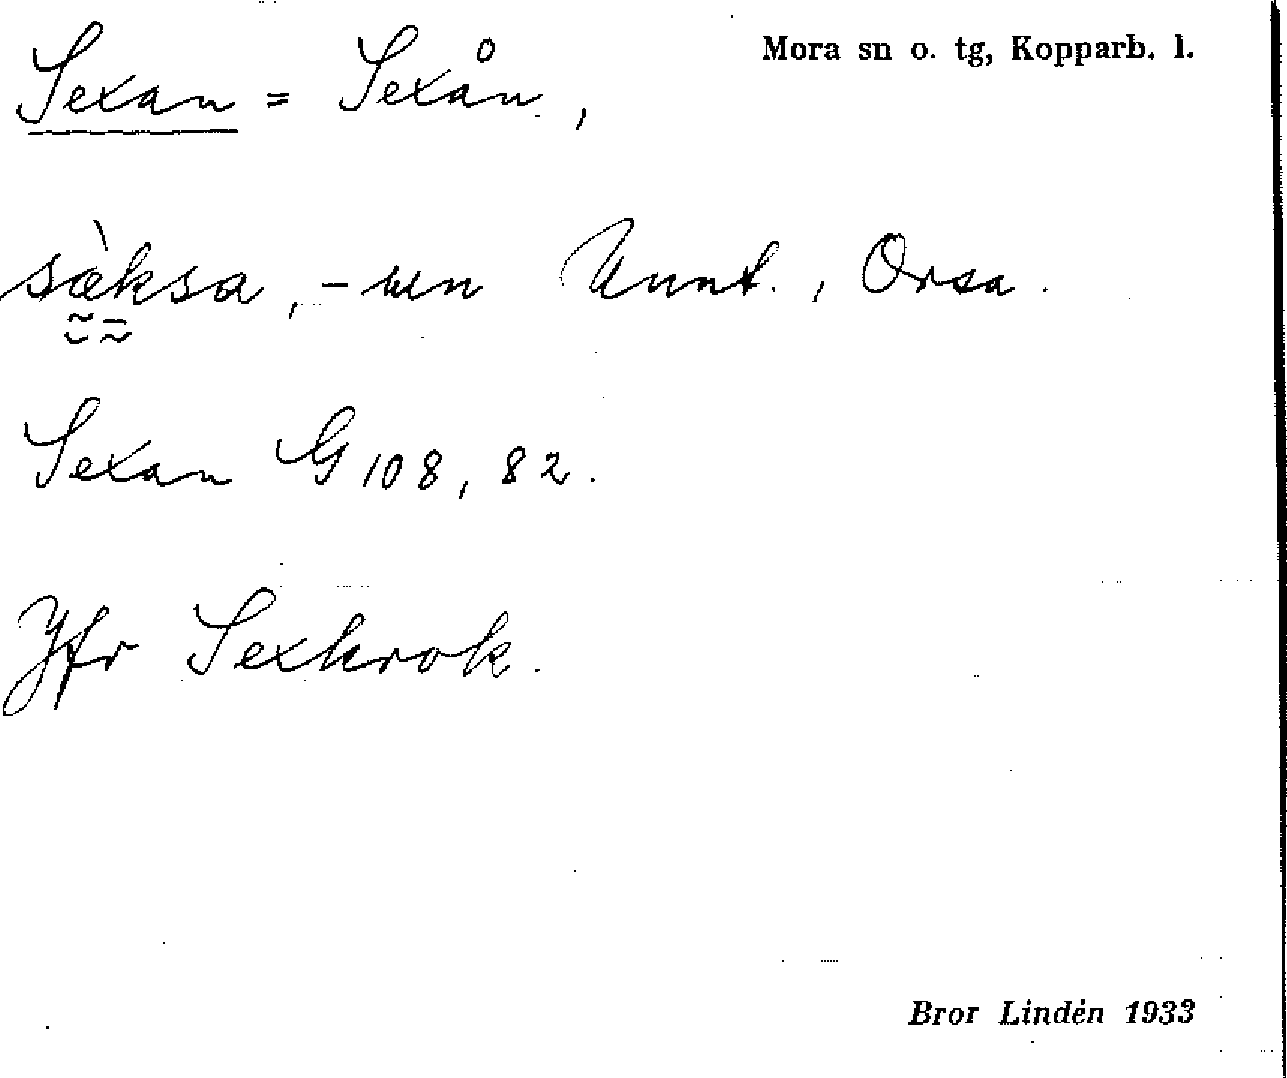 Mora sn o. tg, Kopparb. l.
Sexan = Sexån,
sæ̀ksa, -un Unnt., Orsa.
Sexan G 108, 82.
Jfr Sexkrok.
Bror Lindén 1933